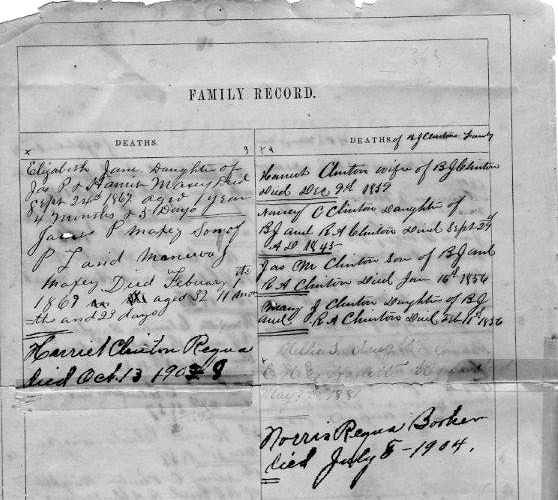 FAMILY RECORD.
DEATHS.
Elizabeth Jane Daughter of
Jas P & Harriet Maxey Died
Sept 2nd 1867 aged 1 year
4 Months & 5 Days
James P Maxey Son of
P L and
Maxey Died February
1867 aged 32 11 mon
th and 23 days
Harriet Clinton Requa
died Oct. 13 1908
DEATHS. of B J Clintons Family
Harriet Clinton wife of B J Clinton
Died Dec 9th 1839
Nancy C Clinton Daughter of
B J and R A Clinton Died Sept 29
A D 1845
Jas M Clinton Son of B J and
R A Clinton Died Jan 16th 1856
Mary J Clinton Daughter of B J
and R A Clinton Died 1856
Norris Requa Booker
died July 8 - 1904.